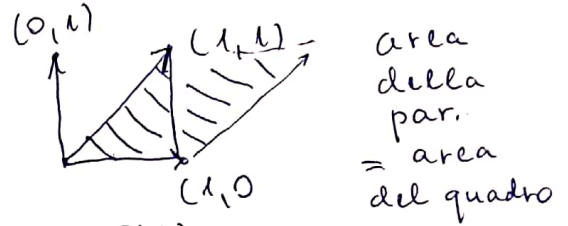 (0,1)
(1,1)
(1,0
area
della
par.
= area
del quadro